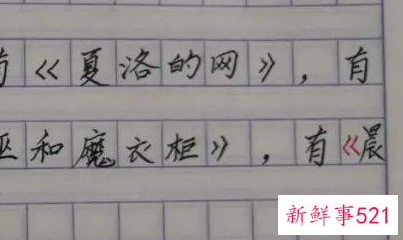 《夏洛的网》，有
和魔衣柜》，有《晨
新鲜事521